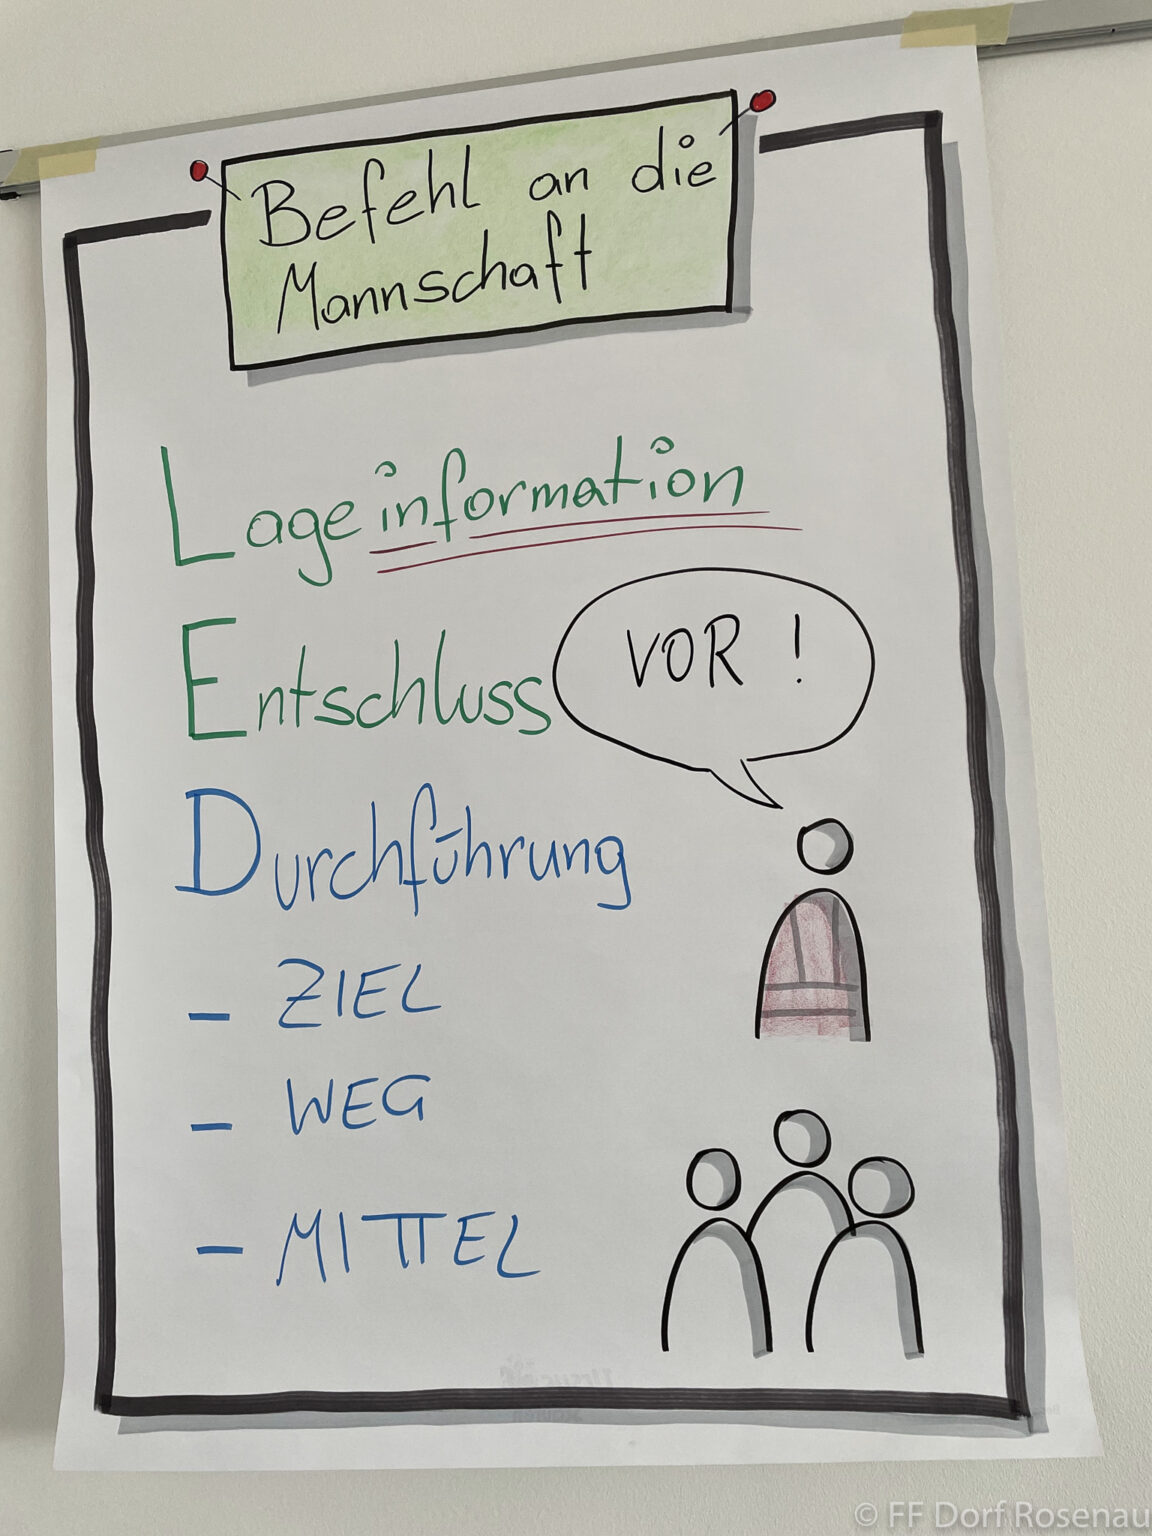 Befehl an die
Mannschaft
Lageinformation
Entschluss
VOR !
Durchführung
- ZIEL
- WEG
- MITTEL
© FF Dorf Rosenau